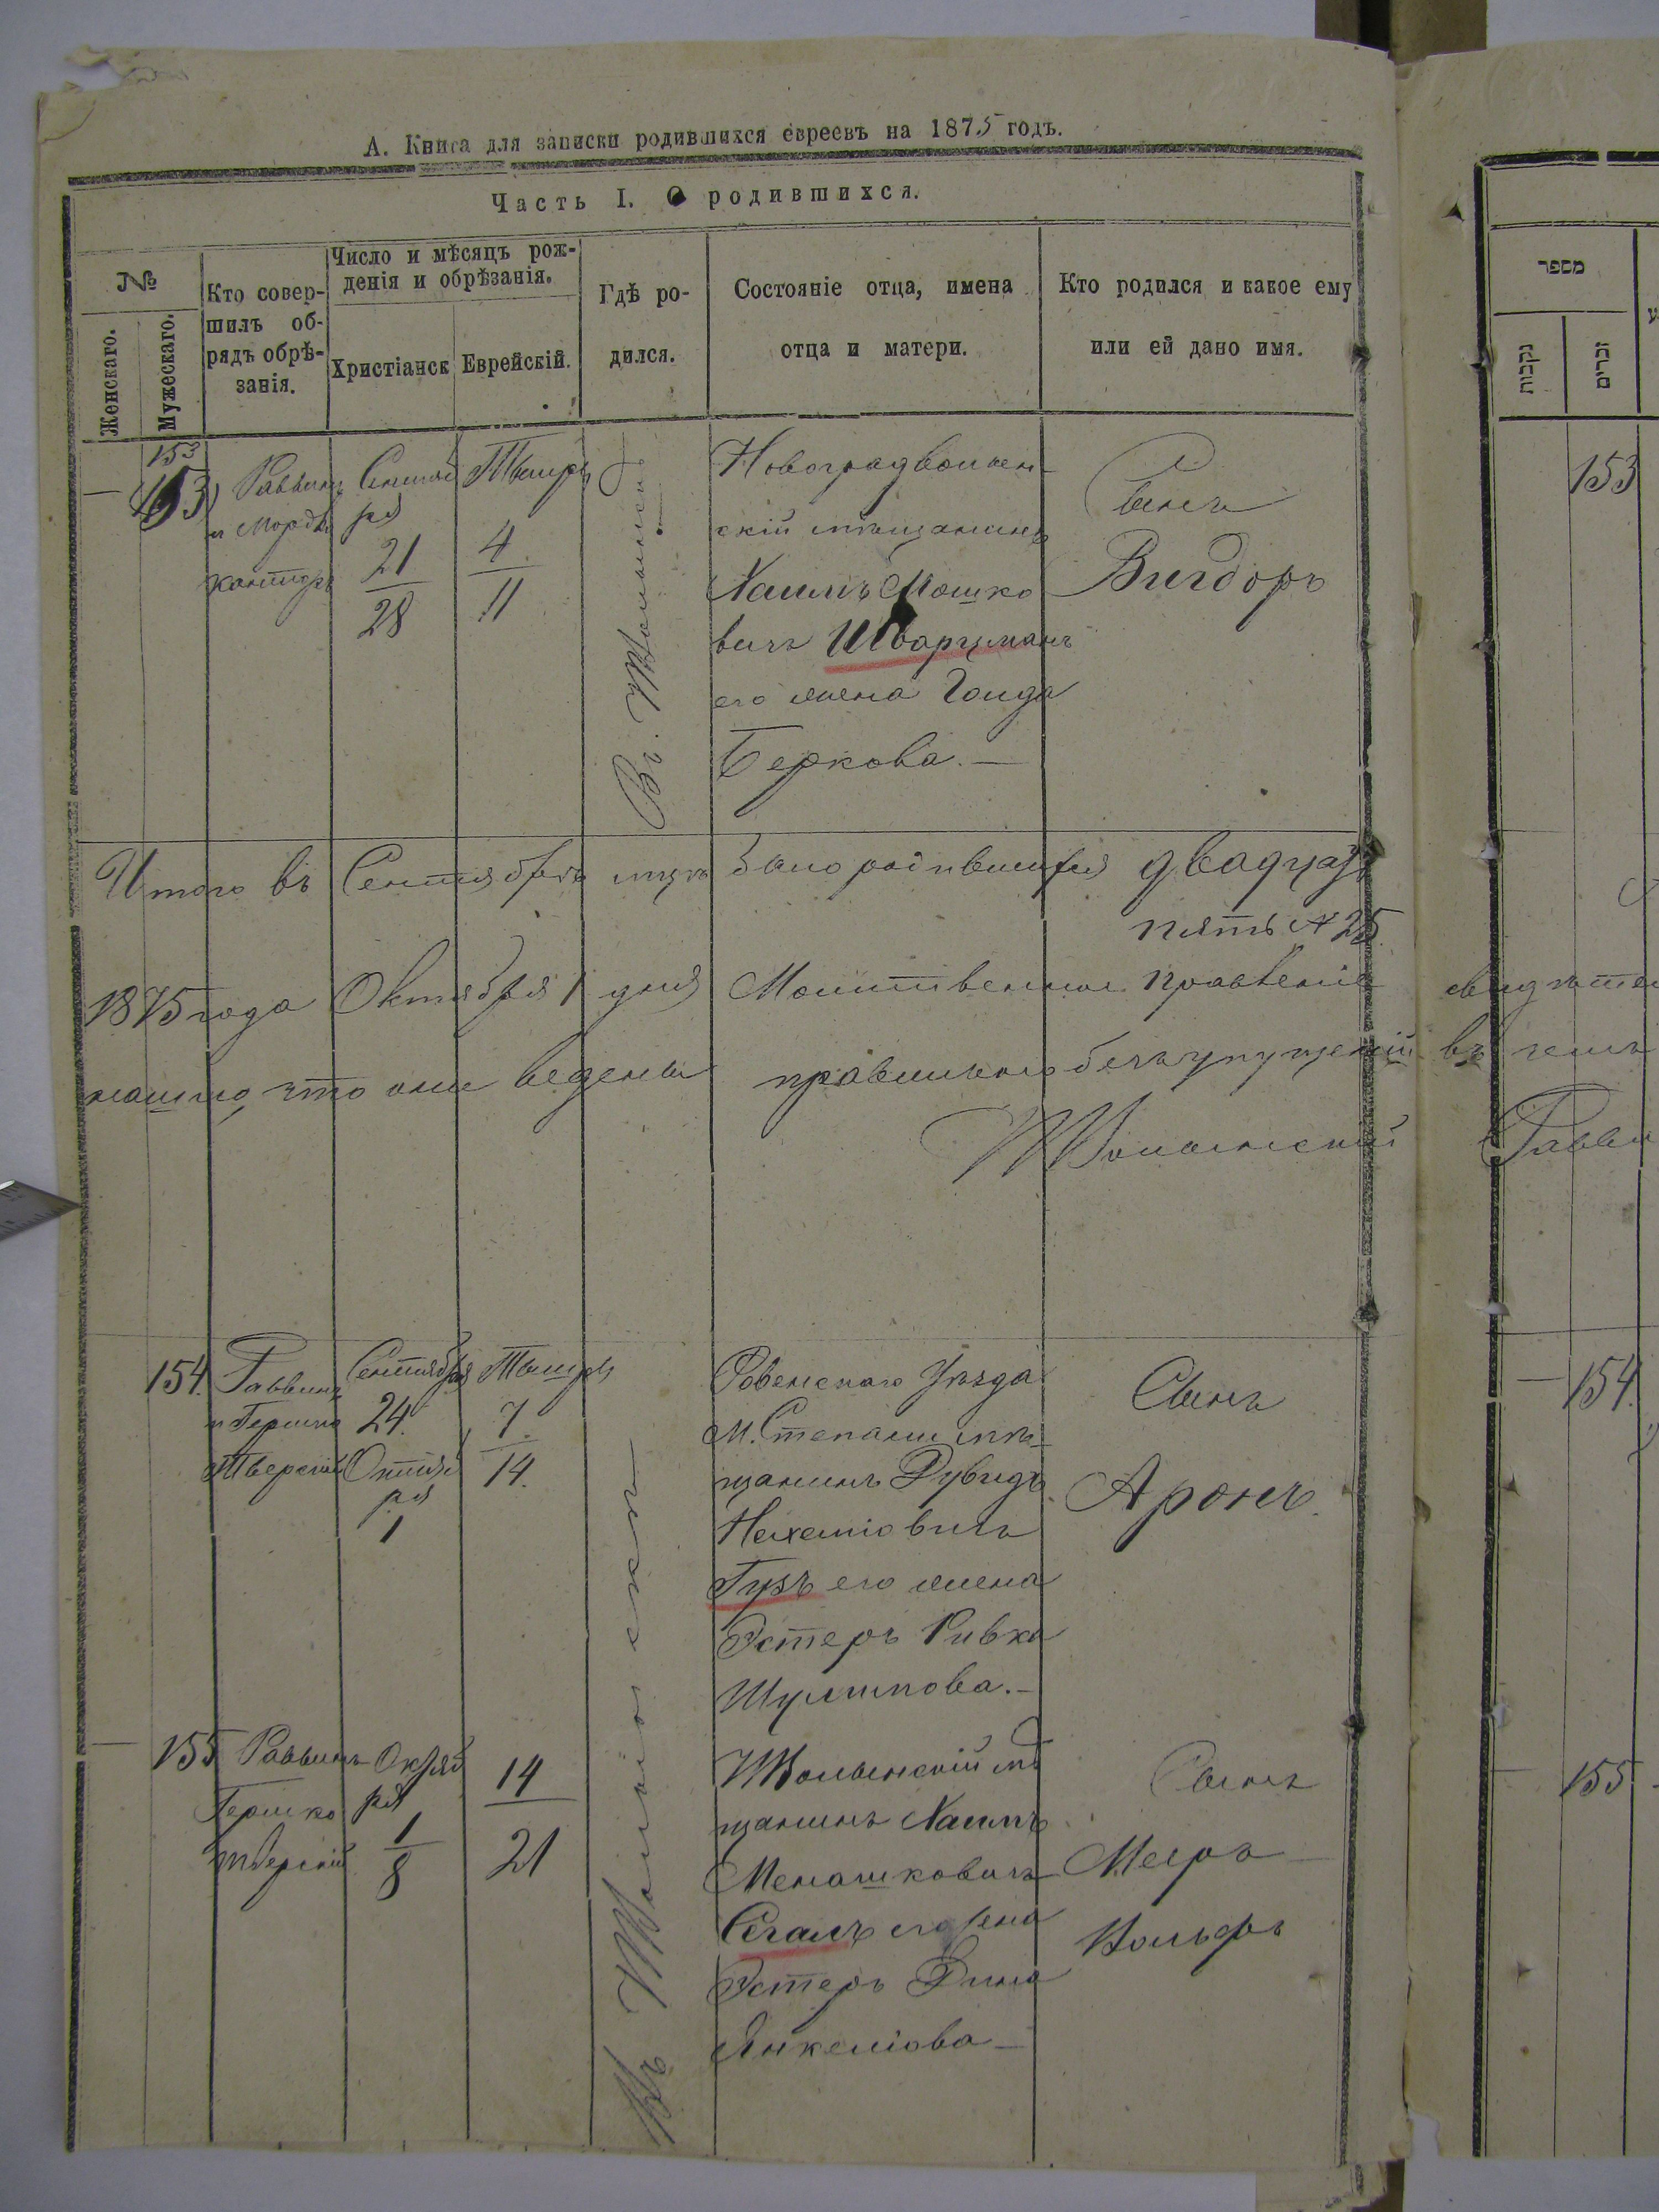 А. Книга для записки родившихся евреевъ на 1875 годъ.
Часть I. О родившихся.
№
Женскаго.
Мужескаго.
Кто совер-
шилъ об-
рядъ обрѣ-
занія.
Число и мѣсяцъ рож-
денія и обрѣзанія.
Христіанск
Еврейскій.
Гдѣ ро-
дился.
Состояніе отца, имена
отца и матери.
Кто родился и какое ему
или ей дано имя.
153
153
Раввинъ
и Мордко
кантор
Сентяб
ря
21
28
Тышры
4
11
Новоградволын-
скій мѣщанинъ
Хаимъ Мошко
вичъ Шварцманъ
его жена Гоида
Беркова.—
Сынъ
Вигдоръ
Итого въ Сентябрѣ мцѣ было родившихся двадцать
пять № 25.
1875 года Октября 1 дня Молитвенное правленіе
что они ведены правильно безъ упущеній въ чемъ
154.
Раввинъ
и Гершко
Тверскій
Сентября
24.
Октяб
ря
1
Тышры
7.
14.
Ровенскаго Уѣзда
м. Степани мѣ-
щанинъ Дувидъ
Нехемiовичъ
Гузъ его жена
Эстеръ Ривка
Шулимова.—
Сынъ
Аронъ.
155
Раввинъ
Гершко
Тверскій
Октяб
ря
1
8
14
21
Волынскій мѣ
щанинъ Хаимъ
Менашковичъ
Сегалъ его жена
Эстеръ Дина
Янкеліова—
Сынъ
Меіръ—
Вольфъ
מספר
נקבות
זכרים
153
Равви
154.
155